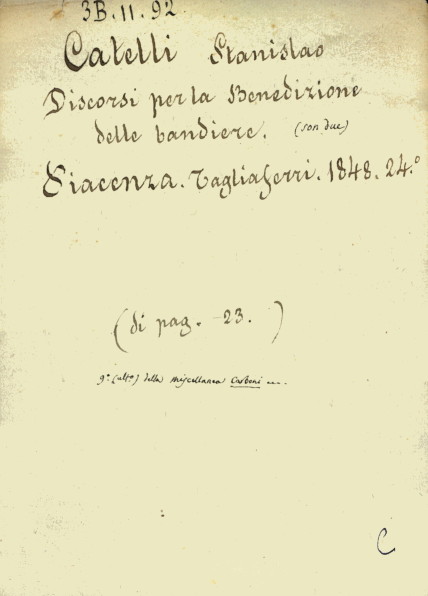 3B.11.92.
Catelli Stanislao
Discorsi per la Benedizione
delle bandiere. (son due)
Piacenza. Tagliaferri. 1848. 24.°
(di pag. 23. )
9° (ult°) della miscellanea Casboni
C